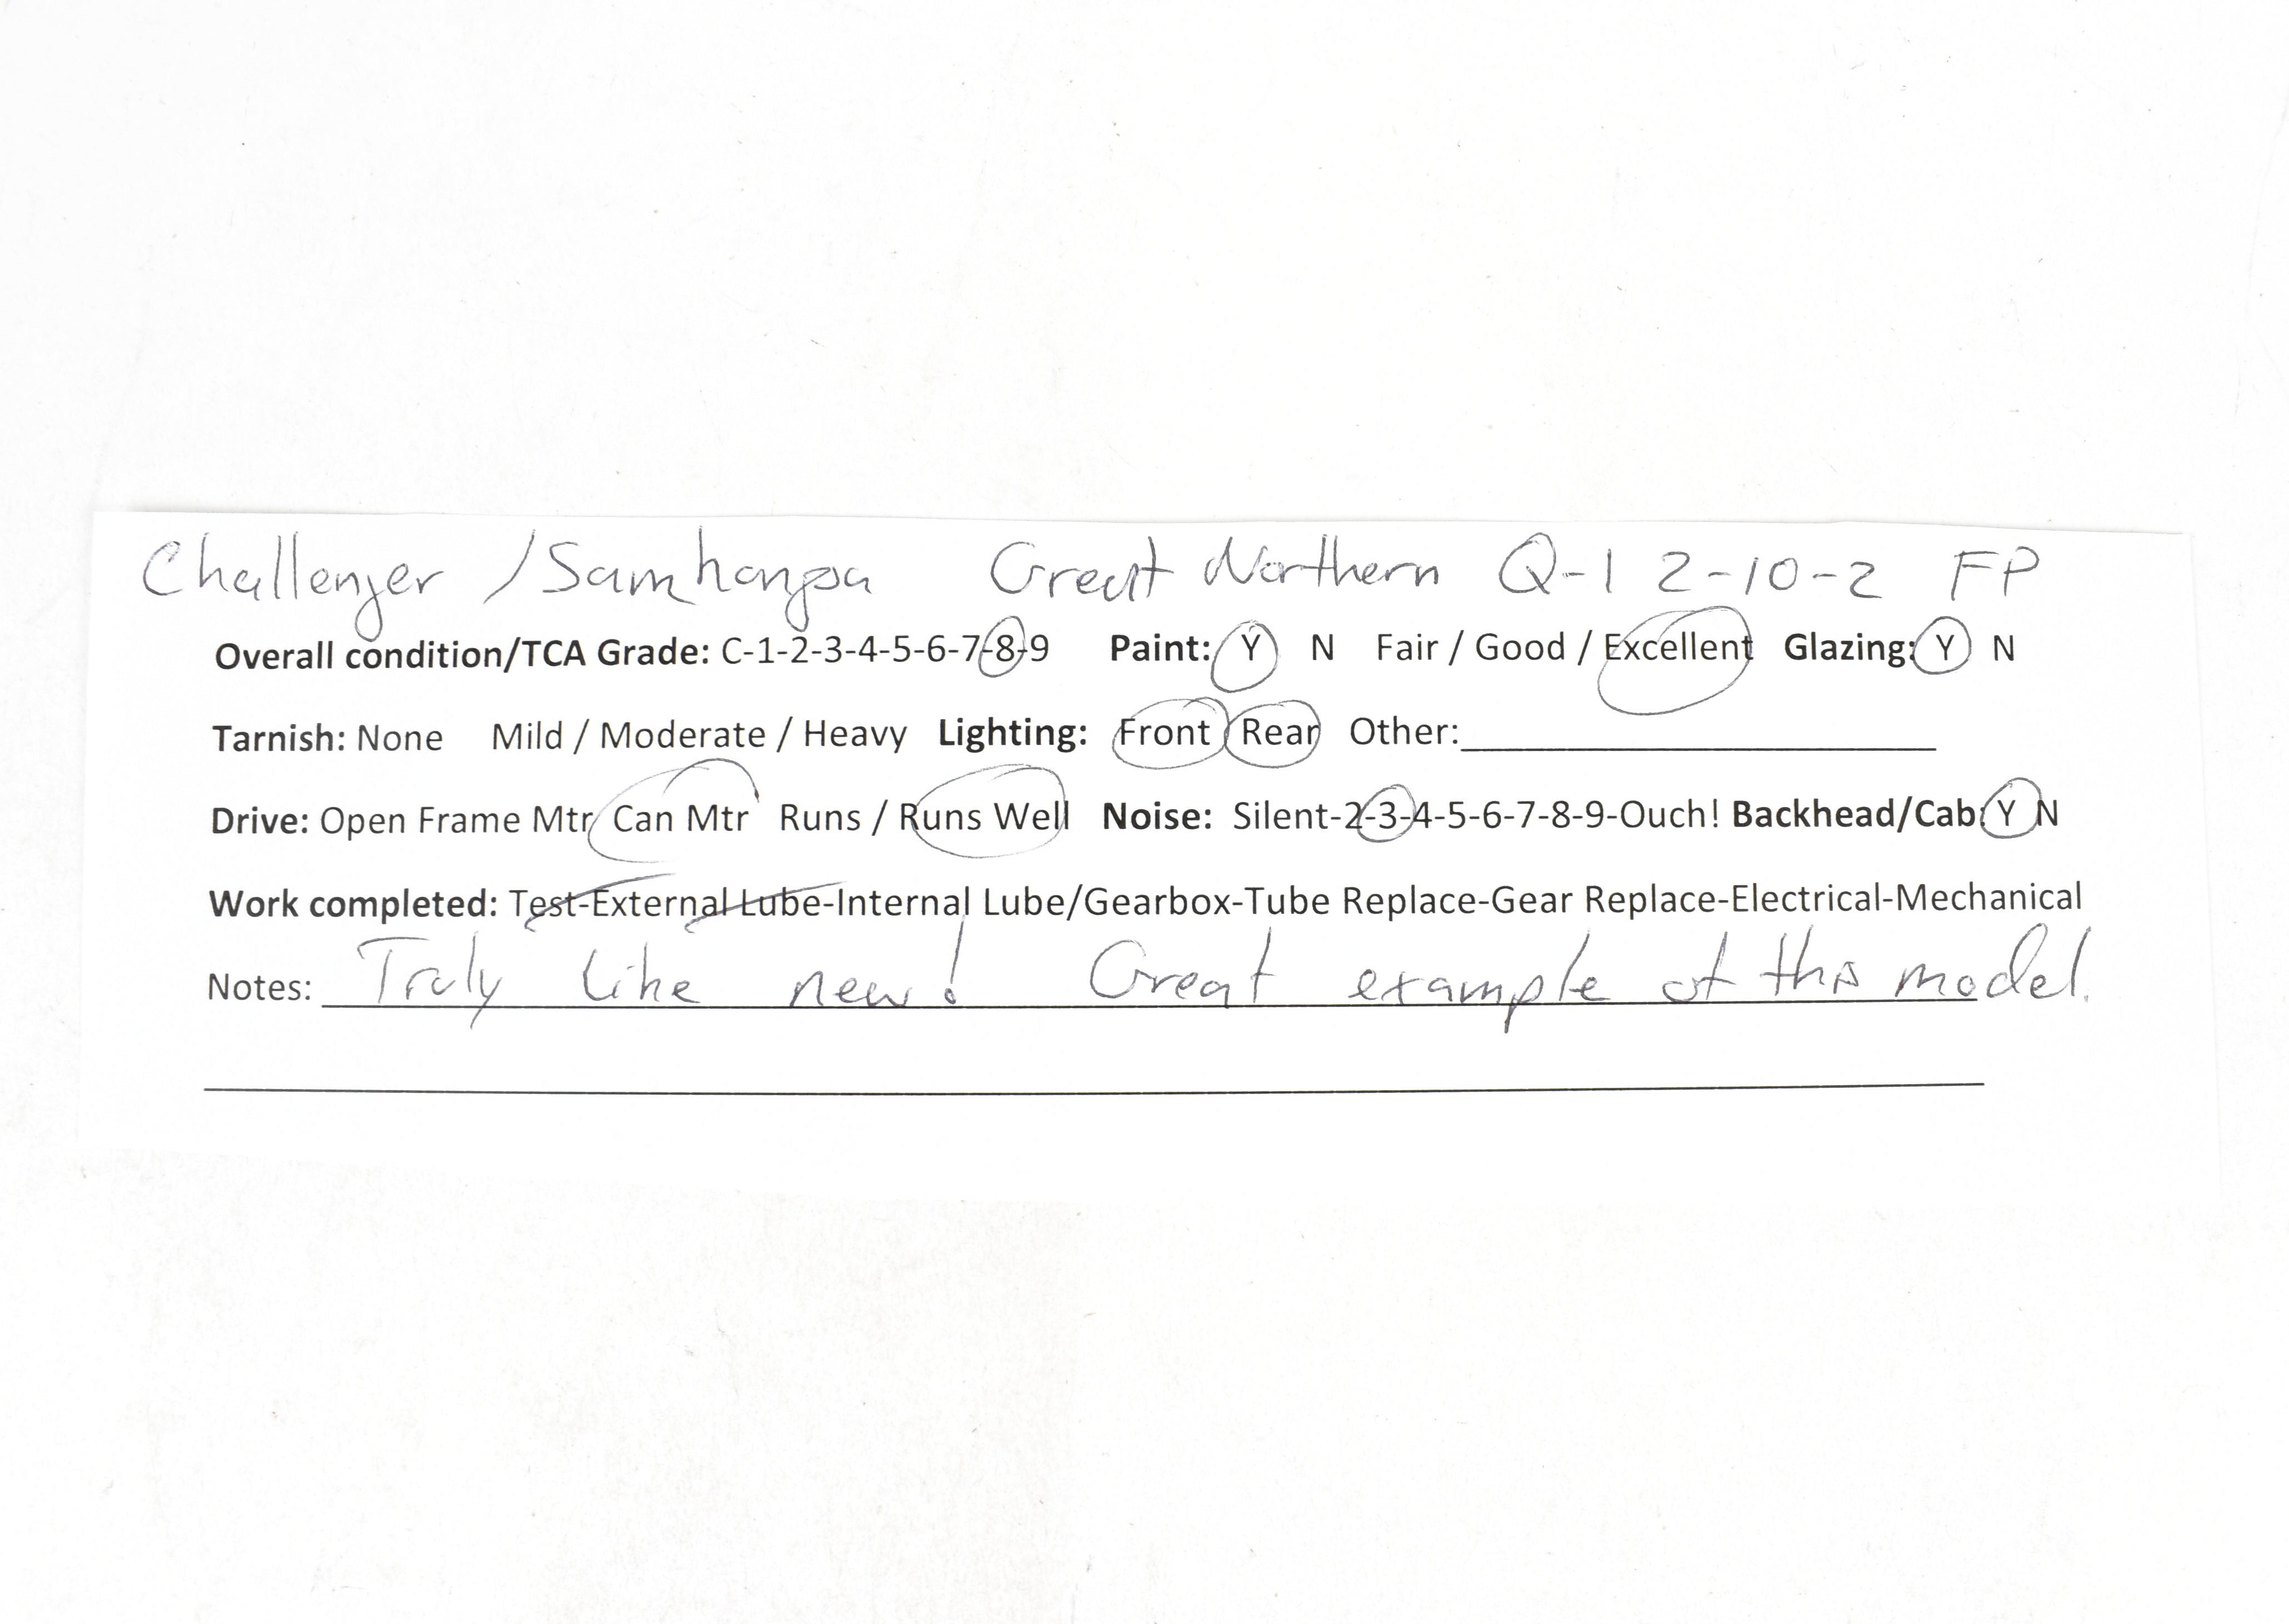 Challenger / Samhongsa Great Northern Q-1 2-10-2 FP
Overall condition/TCA Grade: C-1-2-3-4-5-6-7-8-9 Paint: Y N Fair / Good / Excellent Glazing: Y N
Tarnish: None Mild / Moderate / Heavy Lighting: Front Rear Other:
Drive: Open Frame Mtr Can Mtr Runs / Runs Well Noise: Silent-2-3-4-5-6-7-8-9-Ouch! Backhead/Cab: Y N
Work completed: Test-External Lube-Internal Lube/Gearbox-Tube Replace-Gear Replace-Electrical-Mechanical
Notes: Truly like new! Great example of this model.